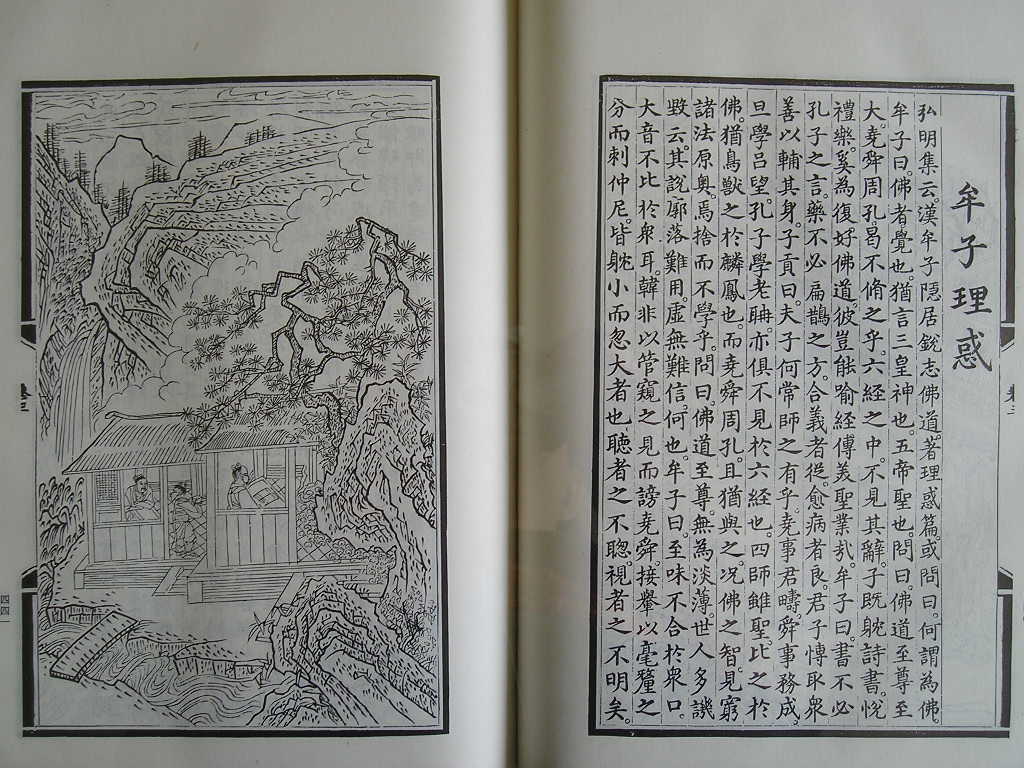 牟子理惑
弘明集云。漢牟子隱居銳志佛道。著理惑篇。或問曰。何謂為佛。
牟子曰。佛者覺也。猶言三皇神也。五帝聖也。問曰。佛道至尊至
大。堯舜周孔曷不脩之乎。六經之中。不見其辭。子既躭詩書。悅
禮樂。奚為復好佛道。彼豈能喻經傳美聖業哉。牟子曰。書不必
孔子之言。藥不必扁鵲之方。合義者從。愈病者良。君子博取眾
善以輔其身。子貢曰。夫子何常師之有乎。堯事君疇。舜事務成。
旦學呂望。孔子學老聃。亦俱不見於六經也。四師雖聖。比之於
佛。猶鳥獸之於麟鳳也。而堯舜周孔。且猶與之。况佛之智見窮
諸法原奥。焉捨而不學乎。問曰。佛道至尊。無為淡薄。世人多譏
毀云。其說廓落難用。虛無難信。何也。牟子曰。至味不合於眾口。
大音不比於眾耳。韓非以管窺之見而謗堯舜。接轝以毫釐之
分而刺仲尼。皆躭小而忽大者也。聽者之不聰。視者之不明矣。
卷三
四四